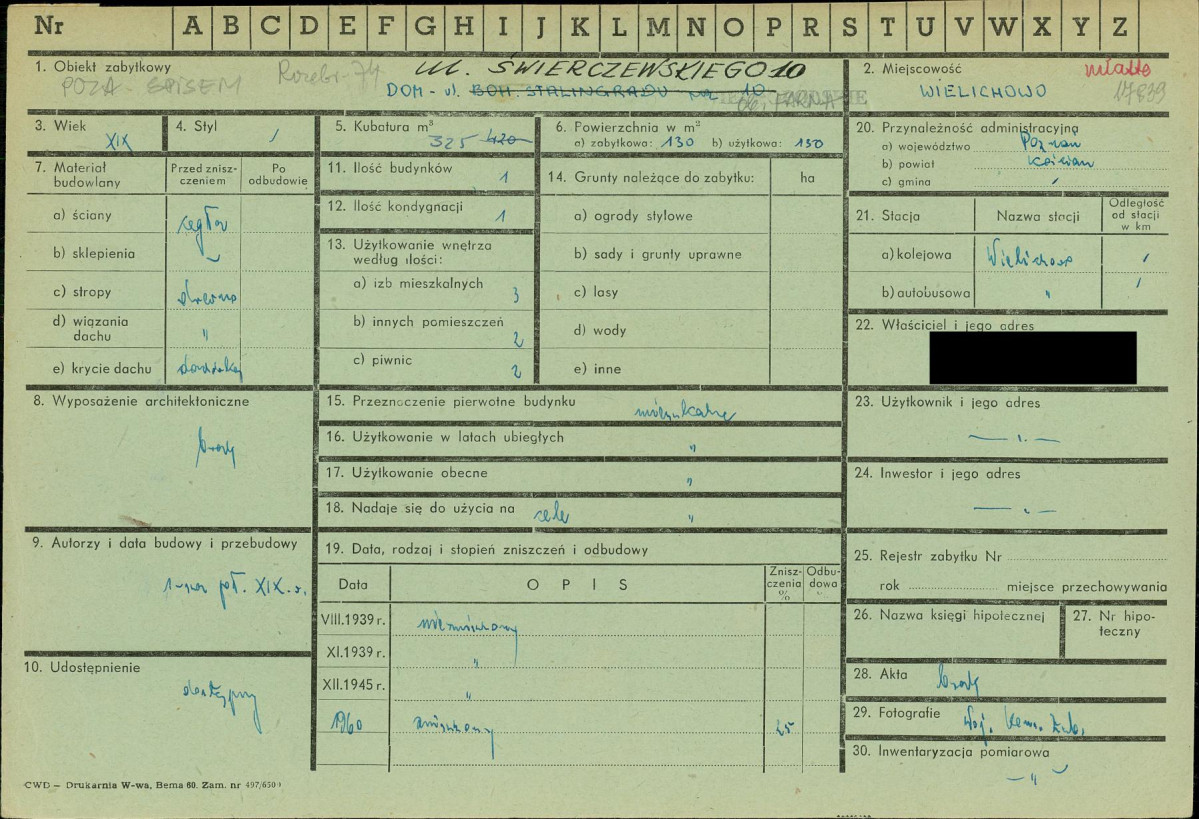 Nr A B C D E F G H I J K L M N O P R S T U V W X Y Z
1. Obiekt zabytkowy
POZA - SPISEM
Rozebr. 74
ul. ŚWIERCZEWSKIEGO 10
DOM - ul. BOH. STALINGRADU nr 10
2. Miejscowość
miasto
WIELICHOWO
17839
3. Wiek
XIX
4. Styl
/
5. Kubatura m³
325 420
6. Powierzchnia w m²
a) zabytkowa: 130 b) użytkowa: 130
7. Materiał budowlany
Przed zniszczeniem
Po odbudowie
a) ściany cegła
b) sklepienia
c) stropy drewno
d) wiązania dachu "
e) krycie dachu dachówka
8. Wyposażenie architektoniczne
brak
9. Autorzy i data budowy i przebudowy
1-sza poł. XIX w.
10. Udostępnienie
dostępny
11. Ilość budynków 1
12. Ilość kondygnacji 1
13. Użytkowanie wnętrza
według ilości:
a) izb mieszkalnych 3
b) innych pomieszczeń 2
c) piwnic 2
14. Grunty należące do zabytku: ha
a) ogrody stylowe
b) sady i grunty uprawne
c) lasy
d) wody
e) inne
15. Przeznaczenie pierwotne budynku mieszkalne
16. Użytkowanie w latach ubiegłych "
17. Użytkowanie obecne "
18. Nadaje się do użycia na cele "
19. Data, rodzaj i stopień zniszczeń i odbudowy
Data OPIS Zniszczenia % Odbudowa %
VIII.1939 r. niezniszczony
XI.1939 r. "
XII.1945 r. "
1960 zniszczony 25
20. Przynależność administracyjna
a) województwo Poznań
b) powiat Kościan
c) gmina /
21. Stacja Nazwa stacji Odległość od stacji w km
a) kolejowa Wielichowo /
b) autobusowa " /
22. Właściciel i jego adres
23. Użytkownik i jego adres
— " —
24. Inwestor i jego adres
— " —
25. Rejestr zabytku Nr
rok miejsce przechowywania
26. Nazwa księgi hipotecznej
27. Nr hipoteczny
28. Akta brak
29. Fotografie Woj. Kons. Zab.
30. Inwentaryzacja pomiarowa
— " —
CWD — Drukarnia W-wa, Bema 60. Zam. nr 497/650